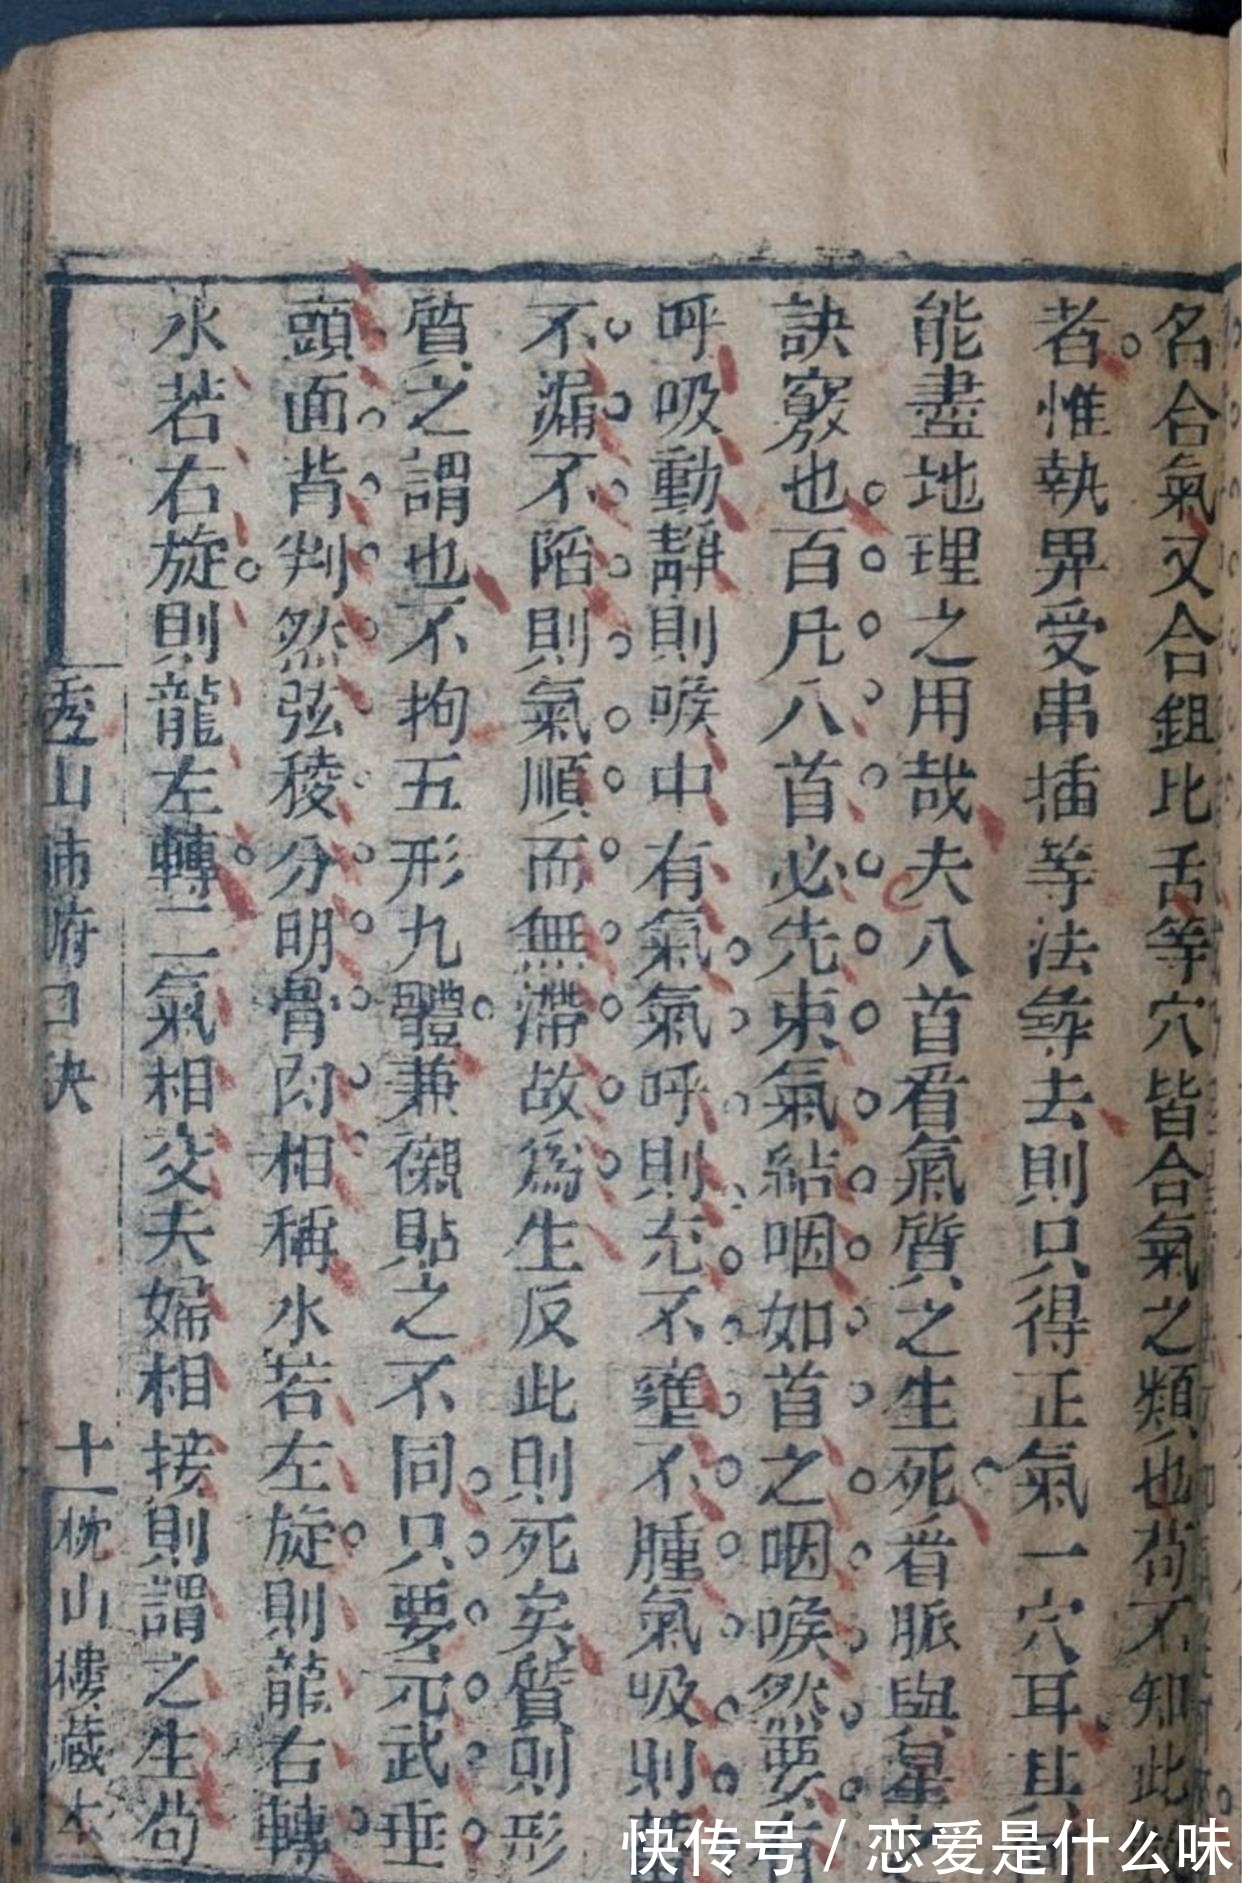 名合氣又合鉏比舌等穴皆合氣之類也苟不知此
者惟執界受串插等法彝去則只得正氣一穴耳其
能盡地理之用哉夫八首看氣質之生死看脈與星
訣竅也百凡八首必先束氣結咽如首之咽喉然要有
呼吸動靜則喉中有氣氣呼則充不壅不腫氣吸則
不漏不陷則氣順而無滯故爲生反此則死矣質則形
質之謂也不拘五形九體兼襯貼之不同只要元武垂
頭面背判然弦稜分明骨肉相稱水若左旋則龍右轉
水若右旋則龍左轉二氣相交夫婦相接則謂之生苟
透山肺腑口訣
十一
枕山樓藏本
快传号/恋爱是什么味